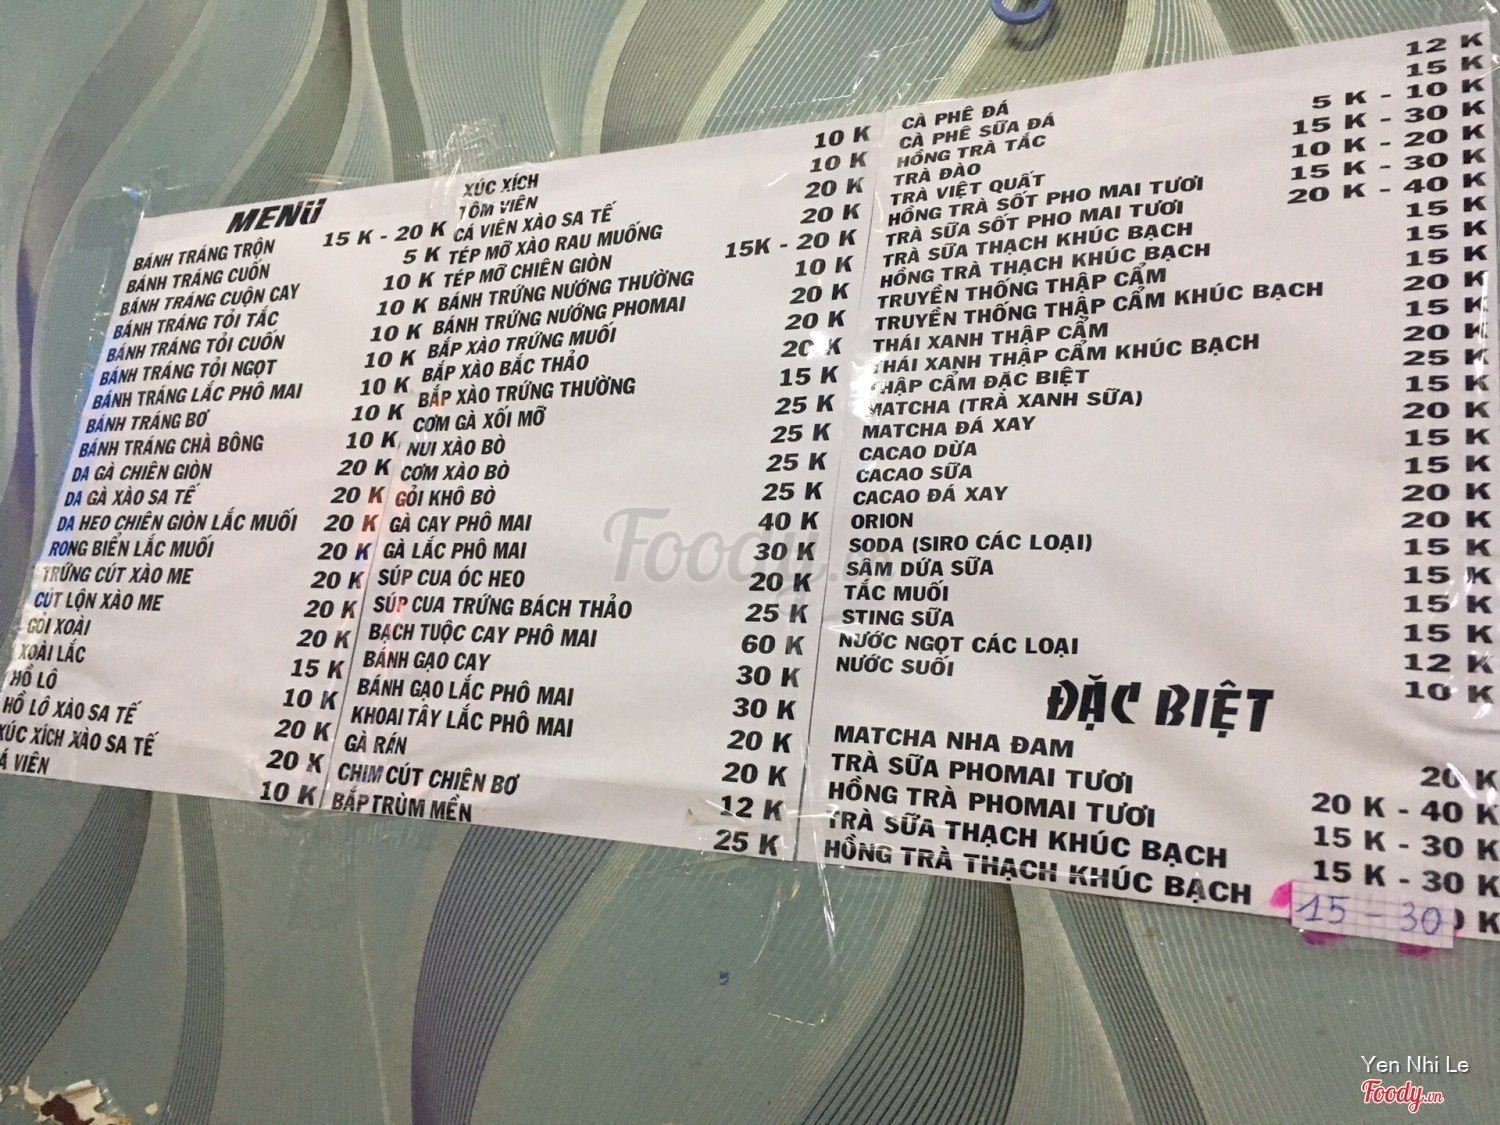 MENU
BÁNH TRÁNG TRỘN 15 K - 20 K
BÁNH TRÁNG CUỐN 5 K
BÁNH TRÁNG CUỘN CAY 10 K
BÁNH TRÁNG TỎI TẮC 10 K
BÁNH TRÁNG TỎI CUỐN 10 K
BÁNH TRÁNG TỎI NGỌT 10 K
BÁNH TRÁNG LẮC PHÔ MAI 10 K
BÁNH TRÁNG BƠ 10 K
BÁNH TRÁNG CHÀ BÔNG 10 K
DA GÀ CHIÊN GIÒN 20 K
DA GÀ XÀO SA TẾ 20 K
DA HEO CHIÊN GIÒN LẮC MUỐI 20 K
RONG BIỂN LẮC MUỐI 20 K
TRỨNG CÚT XÀO ME 20 K
CÚT LỘN XÀO ME 20 K
GỎI XOÀI 20 K
XOÀI LẮC 15 K
HỒ LÔ 10 K
HỒ LÔ XÀO SA TẾ 20 K
XÚC XÍCH XÀO SA TẾ 20 K
Á VIÊN 10 K
XÚC XÍCH 10 K
TÔM VIÊN 10 K
CÁ VIÊN XÀO SA TẾ 20 K
TÉP MỠ XÀO RAU MUỐNG 20 K
TÉP MỠ CHIÊN GIÒN 15K - 20 K
BÁNH TRỨNG NƯỚNG THƯỜNG 10 K
BÁNH TRỨNG NƯỚNG PHOMAI 20 K
BẮP XÀO TRỨNG MUỐI 20 K
BẮP XÀO BẮC THẢO 20 K
BẮP XÀO TRỨNG THƯỜNG 15 K
CƠM GÀ XỐI MỠ 25 K
NUI XÀO BÒ 25 K
CƠM XÀO BÒ 25 K
GỎI KHÔ BÒ 25 K
GÀ CAY PHÔ MAI 40 K
GÀ LẮC PHÔ MAI 30 K
SÚP CUA ÓC HEO 20 K
SÚP CUA TRỨNG BÁCH THẢO 25 K
BẠCH TUỘC CAY PHÔ MAI 60 K
BÁNH GẠO CAY 30 K
BÁNH GẠO LẮC PHÔ MAI 30 K
KHOAI TÂY LẮC PHÔ MAI 20 K
GÀ RÁN 20 K
CHIM CÚT CHIÊN BƠ 12 K
BẮP TRÙM MỀN 25 K
CÀ PHÊ ĐÁ 12 K
CÀ PHÊ SỮA ĐÁ 15 K
HỒNG TRÀ TẮC 5 K - 10 K
TRÀ ĐÀO 15 K - 30 K
TRÀ VIỆT QUẤT 10 K - 20 K
HỒNG TRÀ SỐT PHO MAI TƯƠI 15 K - 30 K
TRÀ SỮA SỐT PHO MAI TƯƠI 20 K - 40 K
TRÀ SỮA THẠCH KHÚC BẠCH 15 K
HỒNG TRÀ THẠCH KHÚC BẠCH 15 K
TRUYỀN THỐNG THẬP CẨM 15 K
TRUYỀN THỐNG THẬP CẨM KHÚC BẠCH 20 K
THÁI XANH THẬP CẨM 15 K
THÁI XANH THẬP CẨM KHÚC BẠCH 20 K
THẬP CẨM ĐẶC BIỆT 25 K
MATCHA (TRÀ XANH SỮA) 15 K
MATCHA ĐÁ XAY 20 K
CACAO DỪA 15 K
CACAO SỮA 15 K
CACAO ĐÁ XAY 20 K
ORION 20 K
SODA (SIRO CÁC LOẠI) 15 K
SÂM DỨA SỮA 15 K
TẮC MUỐI 15 K
STING SỮA 15 K
NƯỚC NGỌT CÁC LOẠI 12 K
NƯỚC SUỐI 10 K
ĐẶC BIỆT
MATCHA NHA ĐAM 20 K
TRÀ SỮA PHOMAI TƯƠI 20 K - 40 K
HỒNG TRÀ PHOMAI TƯƠI 15 K - 30 K
TRÀ SỮA THẠCH KHÚC BẠCH 15 K - 30 K
HỒNG TRÀ THẠCH KHÚC BẠCH 15 - 30 K
Foody.vn
Yen Nhi Le
Foody.vn